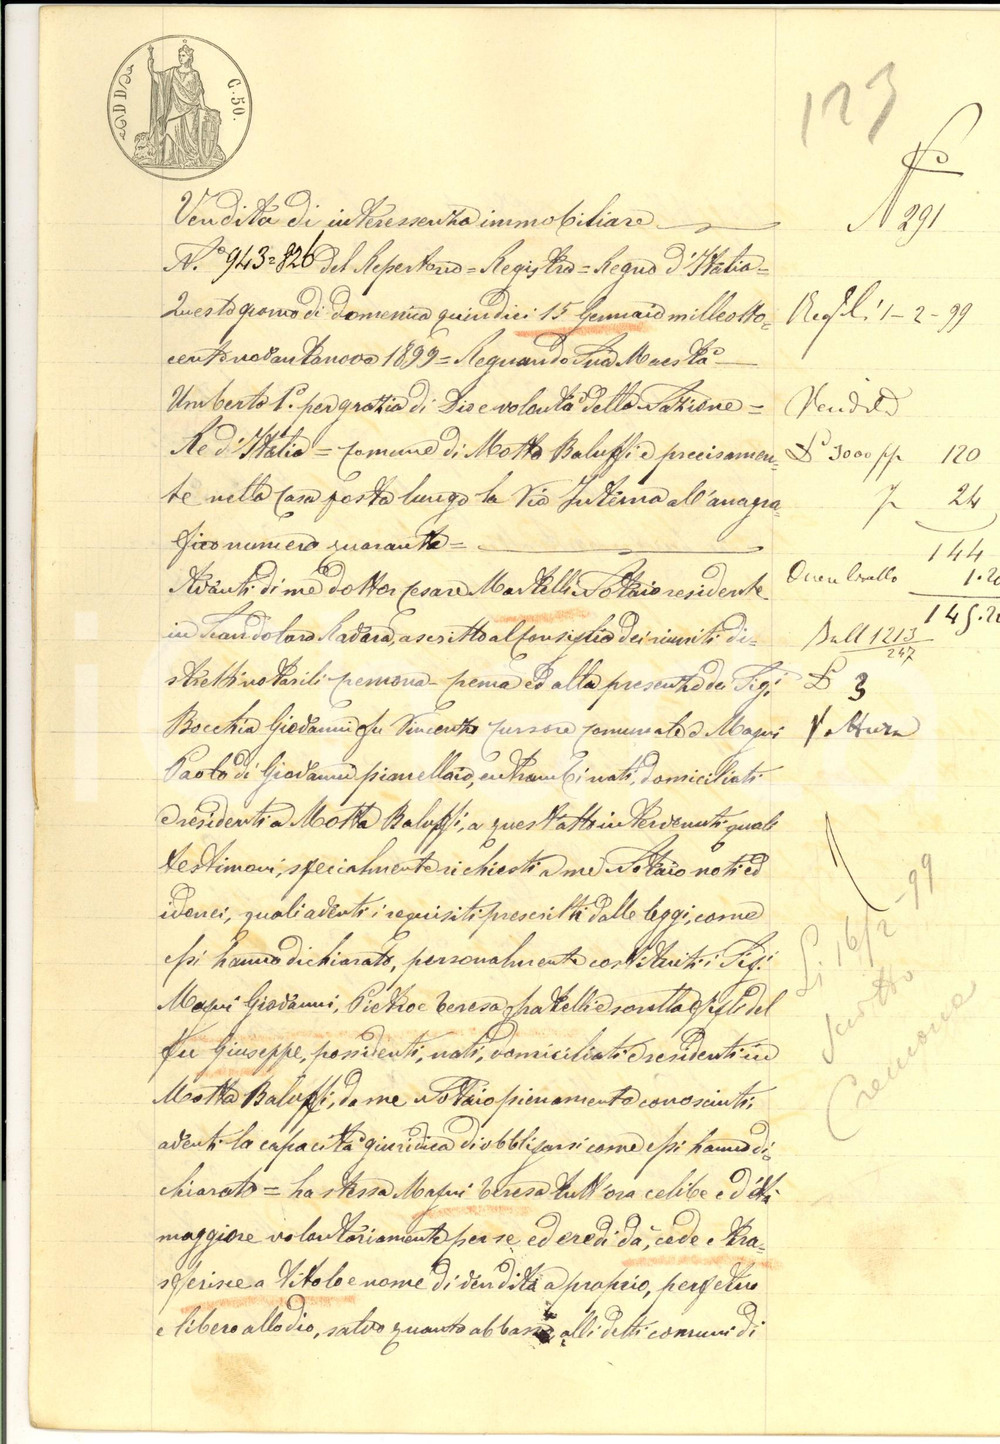 C. 50.
123
N°
291
Vendita di interessenza immobiliare
N.° 943=826 del Repertorio = Registro = Regno d'Italia =
Questo giorno di domenica quindici 15 Gennaio milleotto=
centonovantanove 1899 = Regnando Sua Maestà
Umberto 1.° per grazia di Dio e volontà della Nazione =
Re d'Italia = Comune di Motta Baluffi e precisamen=
te nella casa posta lungo la Via Interna all'anagra=
fico numero quaranta =
Avanti di me dottor Cesare Martelli Notaio residente
in Scandolara Ravara, ascritto al Consiglio dei riuniti di=
stretti notarili Cremona - Crema ed alla presenza dei Sigi
Bocchia Giovanni fu Vincenzo cursore comunale e Magni
Paolo di Giovanni pianellaio, entrambi nati, domiciliati
e residenti a Motta Baluffi, a quest'atto intervenuti quali
testimoni, specialmente richiesti a me Notaio noti ed
idonei, quali aventi i requisiti prescritti dalle leggi, come
essi hanno dichiarato, personalmente costituiti i Sigi
Magni Giovanni, Pietro e Teresa fratelli e sorella figli del
fu Giuseppe, possidenti, nati, domiciliati e residenti in
Motta Baluffi, da me Notaio pienamente conosciuti,
aventi la capacità giuridica di obbligarsi come essi hanno di=
chiarato = la stessa Magni Teresa tutt'ora celibe e d'età
maggiore volontariamente per se, ed eredi dà, cede e tra=
sferisce a titolo e nome di vendita a proprio, perfetto
e libero allodio, salvo quanto abbasso alli detti comuni di
Reg. li 1-2-99
Vendita
£ 3000 pp 120
24
144
1.20
145.20
Boll 1213
247
£ 3
Voltura
Li 16/2-99
Scritto
Cremona